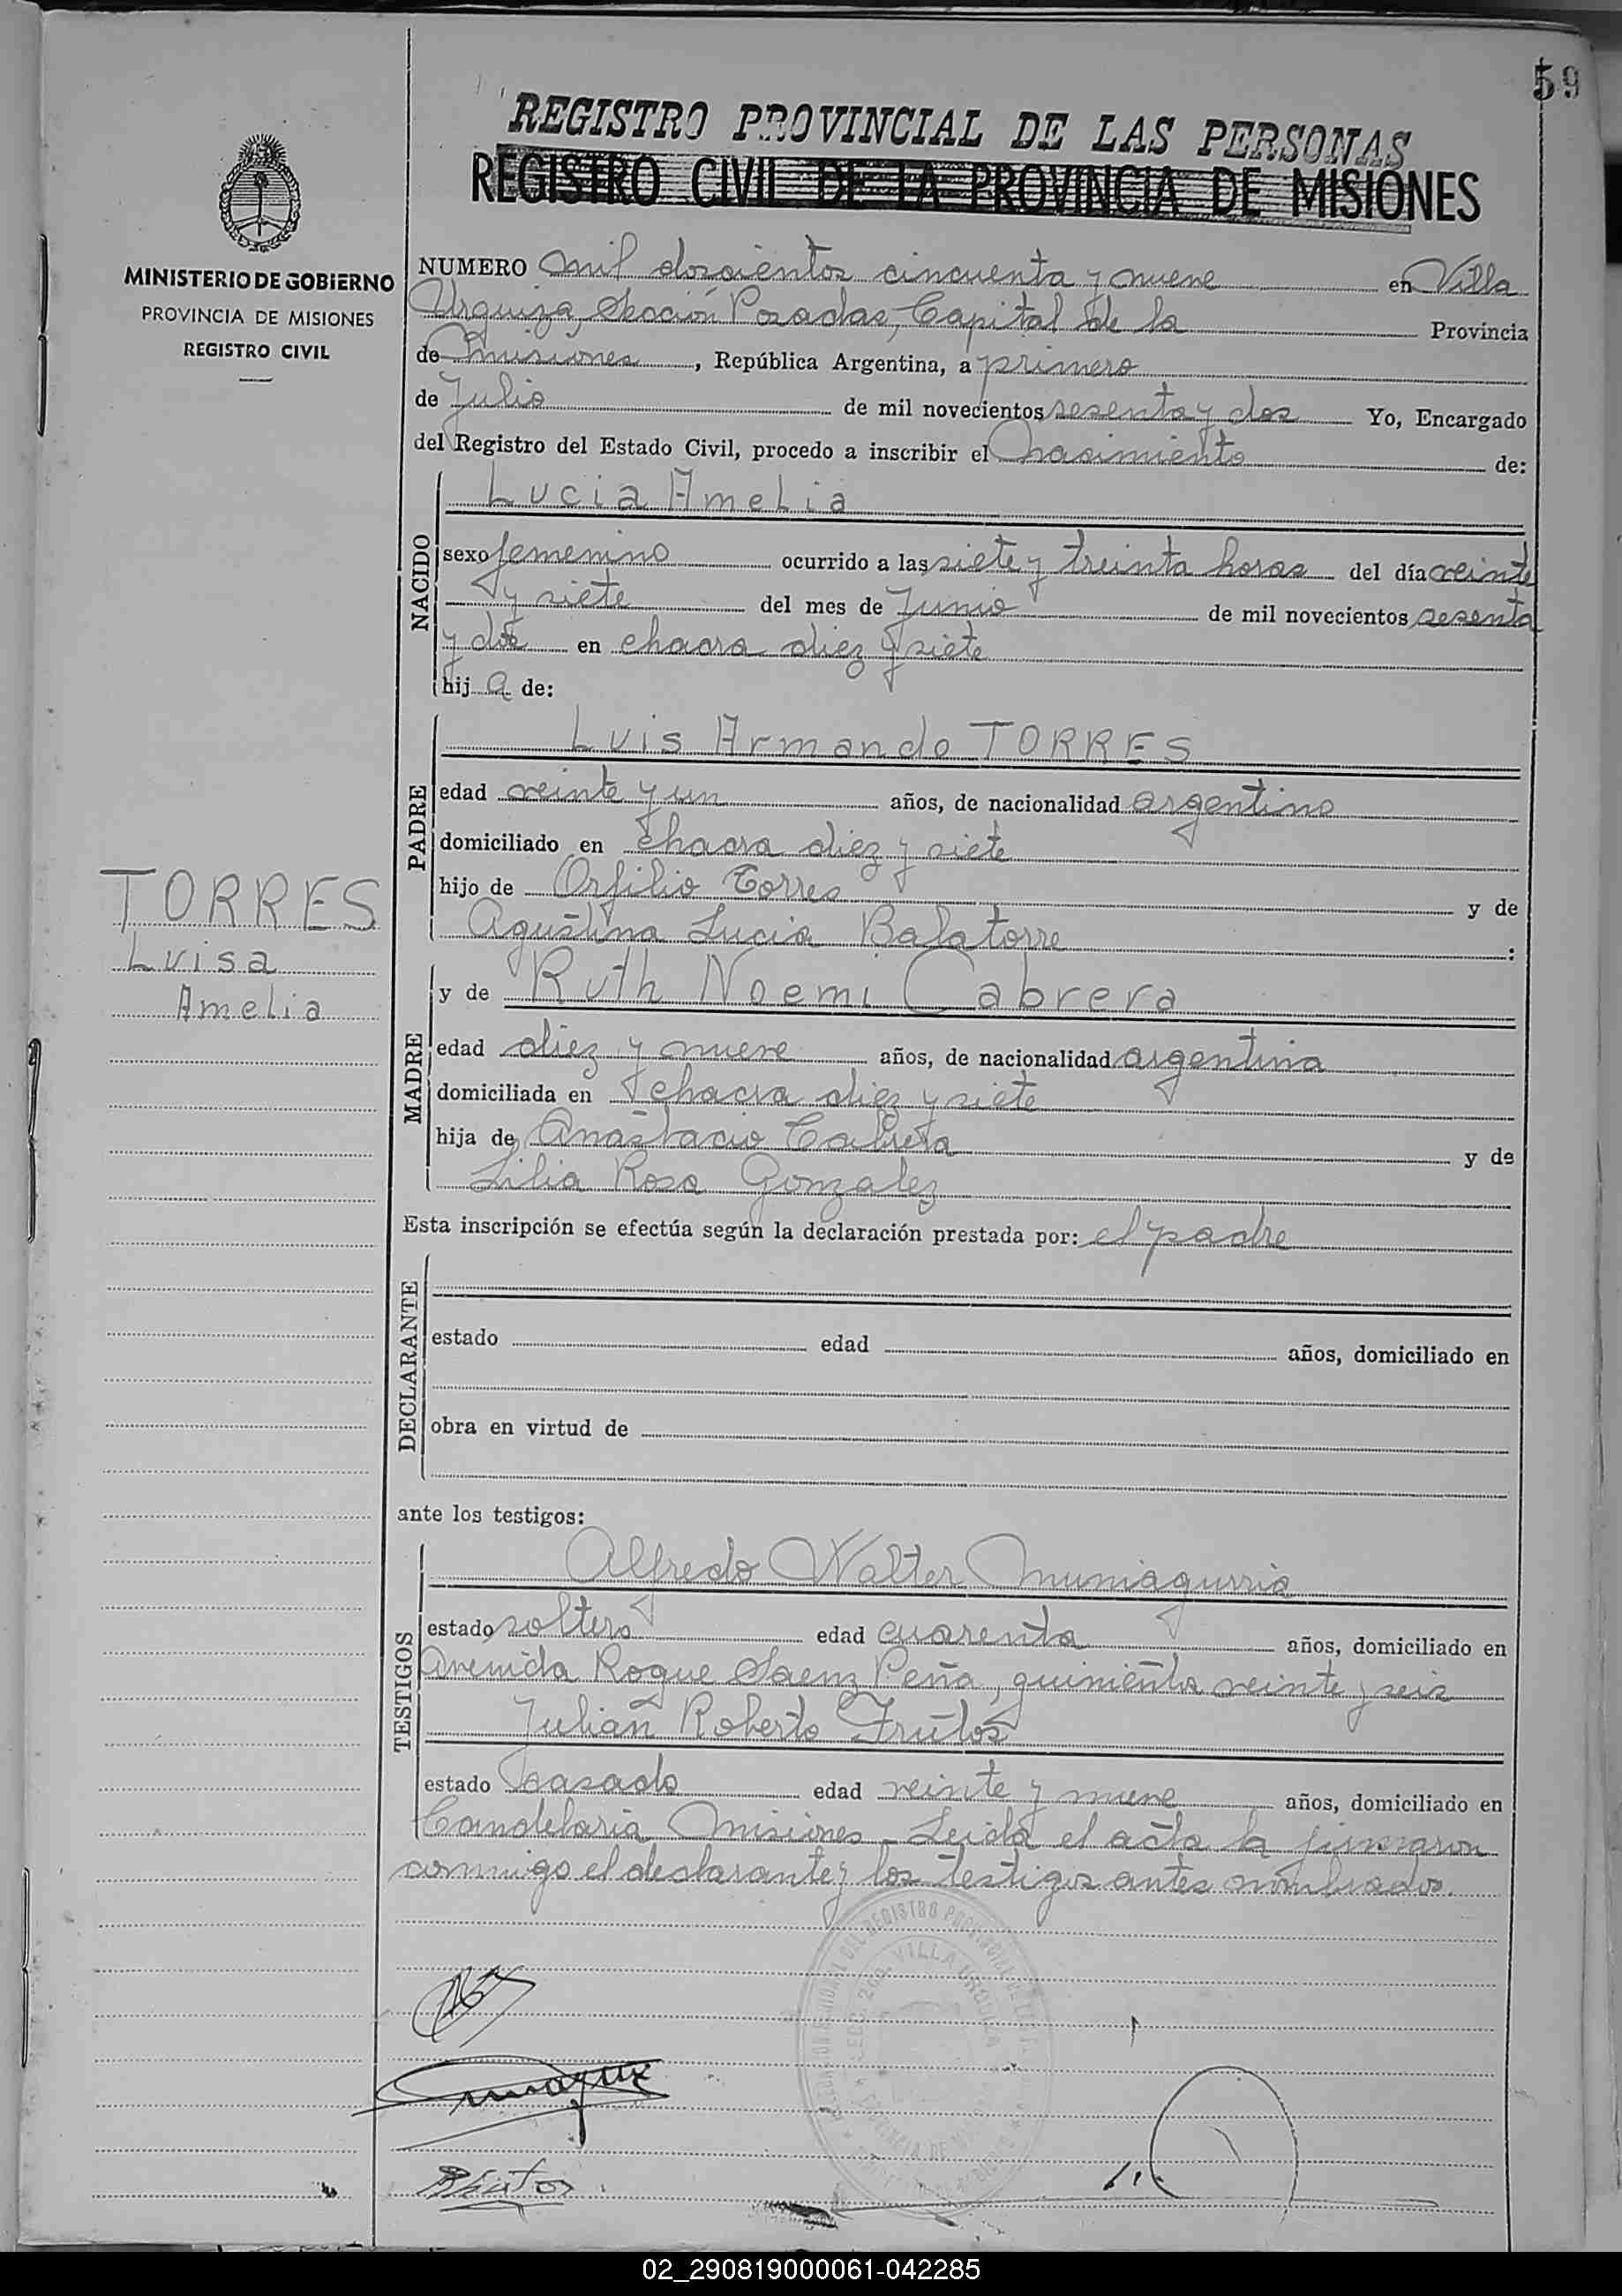 59
REGISTRO PROVINCIAL DE LAS PERSONAS
REGISTRO CIVIL DE LA PROVINCIA DE MISIONES
MINISTERIO DE GOBIERNO
PROVINCIA DE MISIONES
REGISTRO CIVIL
NUMERO mil doscientos cincuenta y nueve en Villa
Urquiza, Sección Posadas, Capital de la Provincia
de Misiones, República Argentina, a primero
de Julio de mil novecientos sesenta y dos Yo, Encargado
del Registro del Estado Civil, procedo a inscribir el nacimiento de:
NACIDO
Lucia Amelia
sexo femenino ocurrido a las siete y treinta horas del día veinte
y siete del mes de Junio de mil novecientos sesenta
y dos en chacra diez y siete
hij a de:
PADRE
Luis Armando TORRES
edad veinte y un años, de nacionalidad argentino
domiciliado en chacra diez y siete
hijo de Orfilio Torres y de
Agustina Lucia Balatorre :
TORRES
Luisa
Amelia
MADRE
y de Ruth Noemi Cabrera
edad diez y nueve años, de nacionalidad argentina
domiciliada en chacra diez y siete
hija de Anastacio Cabrera y de
Lilia Rosa Gonzalez
Esta inscripción se efectúa según la declaración prestada por: el padre
DECLARANTE
estado edad años, domiciliado en
obra en virtud de
ante los testigos:
TESTIGOS
Alfredo Walter Muniagurria
estado soltero edad cuarenta años, domiciliado en
Avenida Roque Saenz Peña, quinientos veinte y seis
Julian Roberto Frutos
estado casado edad veinte y nueve años, domiciliado en
Candelaria Misiones. Leida el acta la firmaron
conmigo el declarante y los testigos antes nombrados.
VILLA URQUIZA
02_290819000061-042285